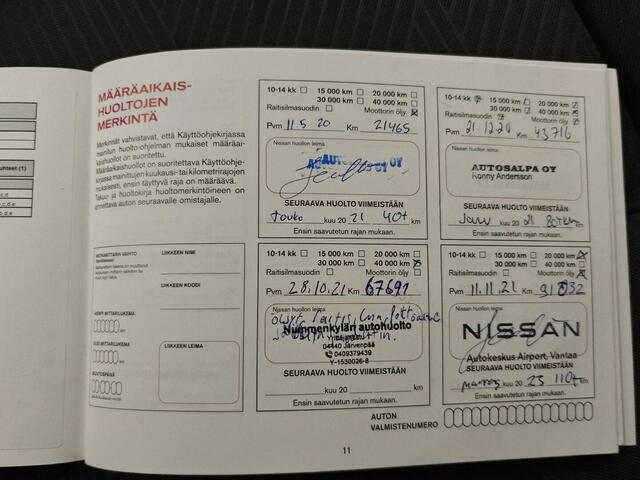 MÄÄRÄAIKAIS-
HUOLTOJEN
MERKINTÄ
Merkinnät vahvistavat, että Käyttöohjekirjassa
mainitun huolto-ohjelman mukaiset määräai-
kaishuollot on suoritettu.
Määräaikaishuollot on suoritettava Käyttöohje-
kirjassa mainittujen kuukausi- tai kilometrirajojen
mukaisesti, ensin täyttyvä raja on määräävä.
Takuu- ja huoltokirja huoltomerkintöineen on
annettava auton seuraavalle omistajalle.
MATKAMITTARIN VAIHTO
LIIKKEEN NIMI
LIIKKEEN KOODI
LIIKKEEN LEIMA
10-14 kk 15 000 km 20 000 km
30 000 km 40 000 km
Raitisilmasuodin Moottorin öljy
Pvm 11.5.20 Km 21465
Nissan huollon leima
AUTOSALPA OY
SEURAAVA HUOLTO VIIMEISTÄÄN
Touko kuu 20 21 40t km
Ensin saavutetun rajan mukaan.
10-14 kk 15 000 km 20 000 km
30 000 km 40 000 km
Raitisilmasuodin Moottorin öljy
Pvm 21.12.20 Km 43716
Nissan huollon leima
AUTOSALPA OY
Ronny Andersson
SEURAAVA HUOLTO VIIMEISTÄÄN
kuu 20 21 km
Ensin saavutetun rajan mukaan.
10-14 kk 15 000 km 20 000 km
30 000 km 40 000 km
Raitisilmasuodin Moottorin öljy
Pvm 28.10.21 Km 67691
Nissan huollon leima
Nummenkylän autohuolto
04440 Järvenpää
0409379439
Y-1530026-8
SEURAAVA HUOLTO VIIMEISTÄÄN
kuu 20 km
Ensin saavutetun rajan mukaan.
10-14 kk 15 000 km 20 000 km
30 000 km 40 000 km
Raitisilmasuodin Moottorin öljy
Pvm 11.11.21 Km
Nissan huollon leima
NISSAN
Autokeskus Airport, Vantaa
SEURAAVA HUOLTO VIIMEISTÄÄN
marras kuu 20 23 110t km
Ensin saavutetun rajan mukaan.
AUTON
VALMISTENUMERO
11